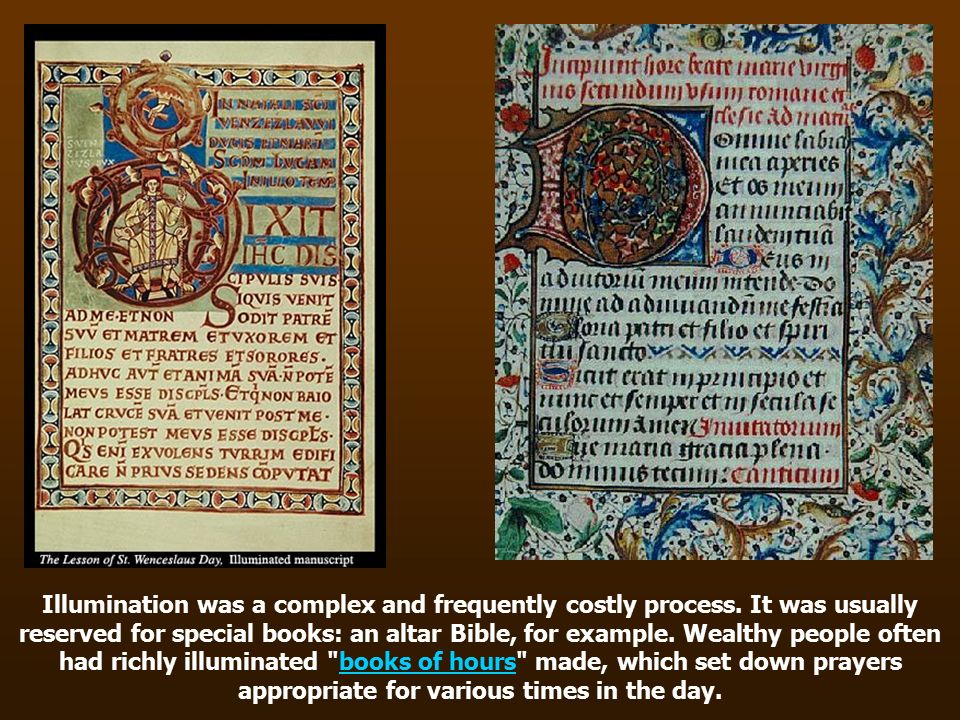 IN NATALI SCI
VENZEZLAVVI
DVCIS ET MART
SCDM LVCAM
IN ILLO TEMP
SVVEN
ZIZLA
VVS DVX
DIXIT
IHC DIS
CIPVLIS SVIS
SIQVIS VENIT
AD ME·ET NON ODIT PATRE᷃
SVV̄ ET MATREM ET VXOREM ET
FILIOS ET FRATRES ET SORORES·
ADHVC AVT̄ ET ANIMĀ SVĀ·N̄ POTĒ
MEVS ESSE DISCPLS·ET Q̇ NON BAIO
LAT CRVCĒ SVĀ ET VENIT POST ME·
NON POTEST MEVS ESSE DISCPLS·
Q'S ENI EXVOLENS TVRRIM EDIFI
CARE N̄ PRIVS SEDENS CŌPVTAT
The Lesson of St. Wenceslaus Day, Illuminated manuscript
Incipiunt hore beate marie virgi
nis secundum usum romane ec
clesie Ad matu
Domine labia
mea aperies
Et os meum
annunciabit
laudem tuā
Deus in
adiutoriū meum intende Do
mine ad adiuuandū me festina
Gloria patri et filio et spiri
tui sancto
Sicut erat in principio et
nunc et semper et in secula se
culorum Amen Inuitatorium
Aue maria gracia plena·
dominus tecum: Canticum
Illumination was a complex and frequently costly process. It was usually
reserved for special books: an altar Bible, for example. Wealthy people often
had richly illuminated "books of hours" made, which set down prayers
appropriate for various times in the day.